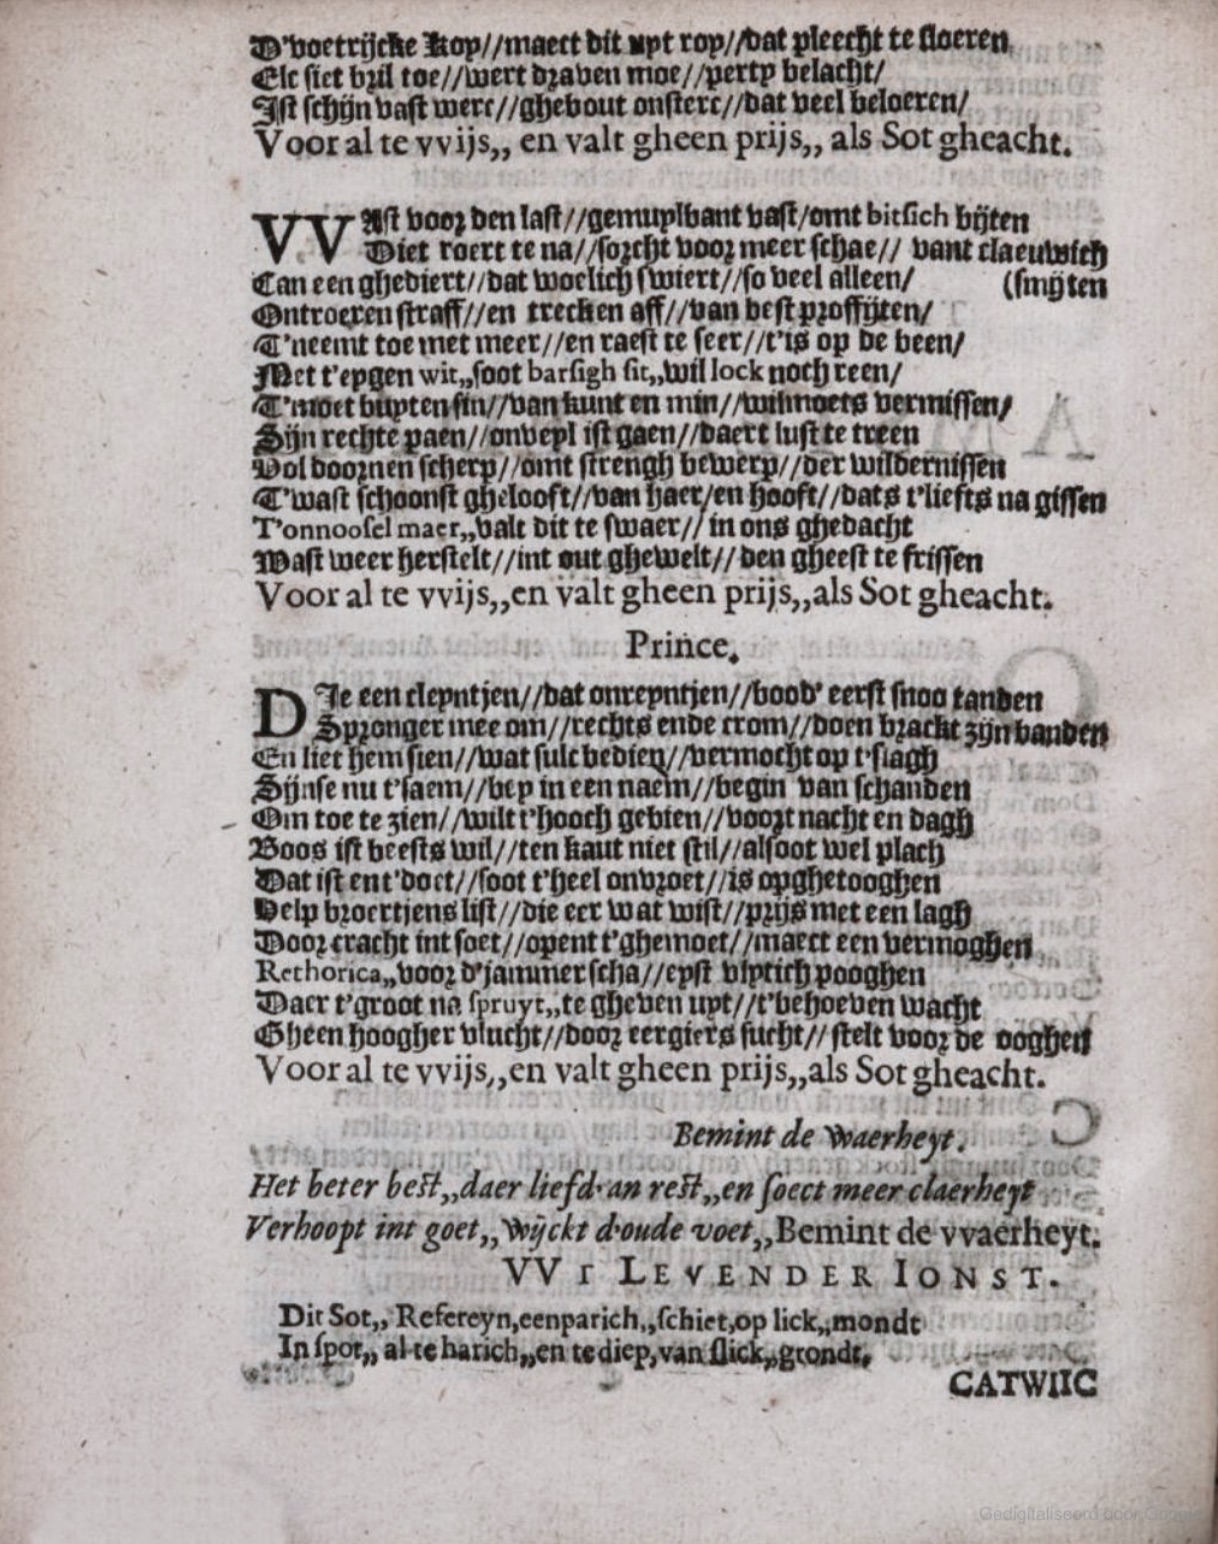 D'voetrijcke Kop//maect dit upt rop//dat pleecht te floeren
Elc siet bzil toe//wert dzaven moe//pertp belacht/
Ist schijn vast werc//ghebout onsterc//dat veel beloeren/
Voor al te vvijs,, en valt gheen prijs,, als Sot gheacht.
VVAst voor den last//gemuplbant vast/omt bitsich bijten
Diet roert te na//sorcht voor meer schae// vant claeuwich
Can een ghediert//dat woelich swiert//so veel alleen/ (smijten
Ontroeren straff//en trecken aff//van best proffijten/
T'neemt toe met meer//en raest te seer//t'is op de been/
Met t'epgen wit,,soot barsigh sit,,wil lock noch reen/
T'moet bupten sin//van kunt en min//wilmoets vermissen/
Sijn rechte paen//onvepl ist gaen//daert lust te treen
Vol doornen scherp//omt strengh bewerp//der wildernissen
T'wast schoonst ghelooft//van haer/en hooft//dats t'liefts na gissen
T'onnoosel maer,,valt dit te swaer// in ons ghedacht
Wast weer herstelt//int out ghewelt// den gheest te frissen
Voor al te vvijs,,en valt gheen prijs,,als Sot gheacht.
Prince.
DIe een clepntjen//dat onrepntjen//bood' eerst snoo tanden
Spronger mee om//rechts ende crom//doen brackt zijn banden
En liet hem sien//wat sulc bedien//vermocht op t'slagh
Sijnse nu t'saem//bep in een naem//begin van schanden
Om toe te zien//wilt t'hooch gebien//voort nacht en dagh
Boos ist beests wil//ten kaut niet stil//alsoot wel plach
Dat ist ent'doet//soot t'heel onvroet//is opghetooghen
Help broertjens list//die eer wat wist//prijs met een lagh
Door cracht int soet//opent t'ghemoet//maect een vermoghen
Rethorica,,voor d'jammer scha//epst vlptich pooghen
Daer t'groot na spruyt,,te gheven upt//t'behoeven wacht
Gheen hoogher vlucht//door eergiers sucht// stelt voor de ooghen
Voor al te vvijs,,en valt gheen prijs,,als Sot gheacht.
Bemint de waerheyt.
Het beter best,,daer liefd'an rest,,en soect meer claerheyt
Verhoopt int goet,,wijckt d'oude voet,,Bemint de vvaerheyt.
VVT LEVENDER IONST.
Dit Sot,, Refereyn,eenparich,,schiet,op lick,,mondt
In spot,, al te harich,,en te diep,van slick,,grondt,
CATWIIC
Gedigitaliseerd door Google